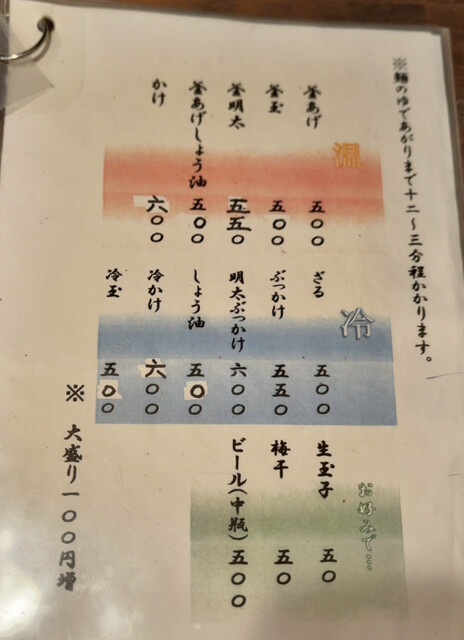 ※麺のゆであがりまで十二～三分程かかります。
温
釜あげ 五〇〇
釜玉 五〇〇
釜明太 五五〇
釜あげしょう油 五〇〇
かけ 六〇〇
冷
ざる 五〇〇
ぶっかけ 五五〇
明太ぶっかけ 六〇〇
しょう油 五〇〇
冷かけ 六〇〇
冷玉 五〇〇
お好みで…
生玉子 五〇
梅干 五〇
ビール(中瓶) 五〇〇
※ 大盛り一〇〇円増